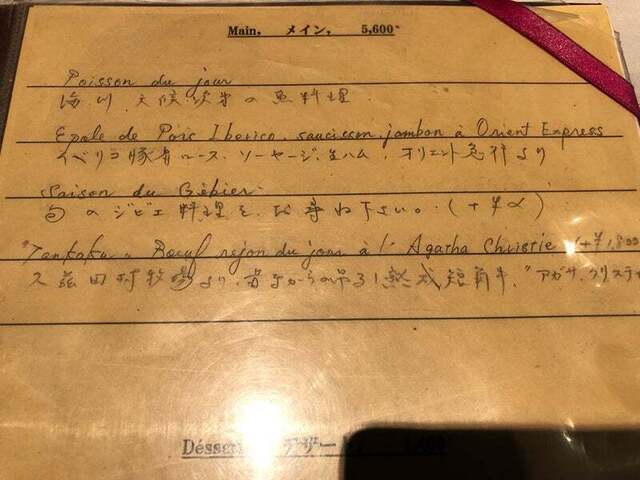 Main, メイン, 5,600-
Poisson du jour
海川、天候次第の魚料理.
Epale de Porc Iberico, saucisson, jambon à Orient Express
イベリコ豚肩ロース、ソーセージ、生ハム、オリエント急行より
Saison du Gébier.
旬のジビエ料理を、お尋ね下さい。(+¥α)
"Tankaku" Bœuf du jour à l'Agatha Christie (+¥1,800
久慈田村牧場より、骨からの吊るし熟成短角牛、"アガサ クリステ
Désser デザート